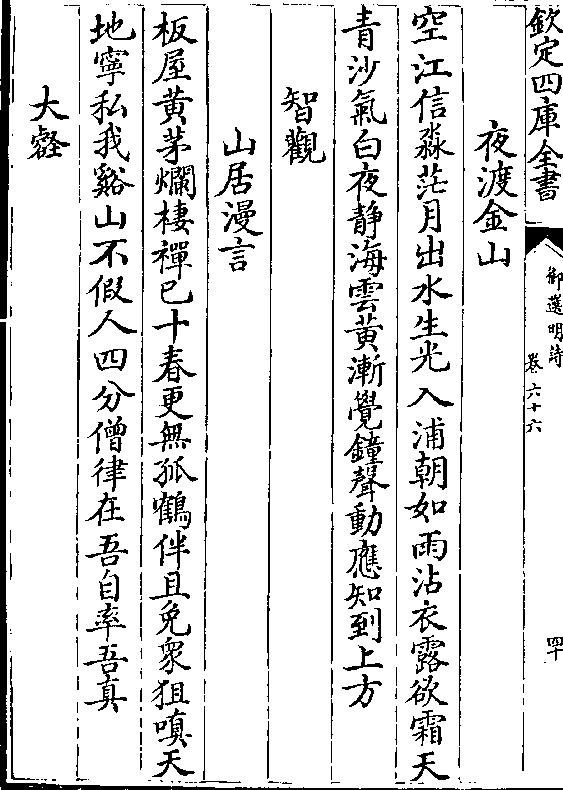 欽定四庫全書
御選明詩
卷六十六
四十
夜渡金山
空江信淼茫月出水生光入浦朝如雨沾衣露欲霜天
青沙氣白夜静海雲黄漸覺鐘聲動應知到上方
智觀
山居漫言
板屋黄茅爛棲禪已十春更無孤鶴伴且免衆狙嗔天
地寧私我谿山不假人四分僧律在吾自率吾真
大壑